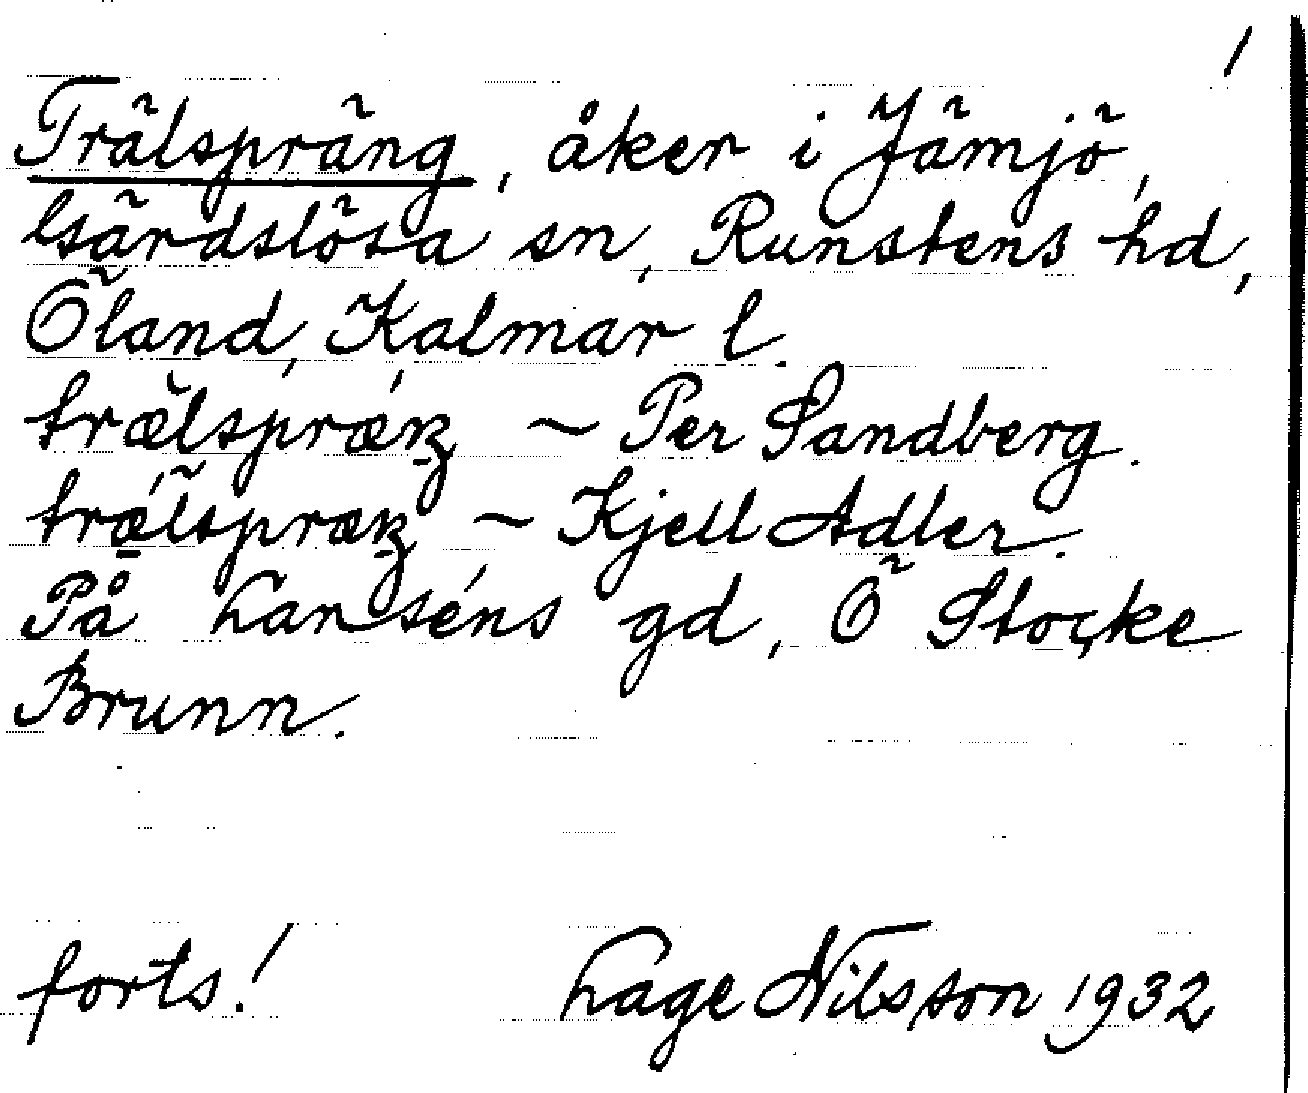 /
Trälspräng, åker i Jämjö,
Gärdslösa sn, Runstens hd,
Öland, Kalmar l.
~ Per Sandberg.
~ Kjell Adler.
På Larséns gd, Ö Stocke
Brunn.
forts./ Lage Nilsson 1932